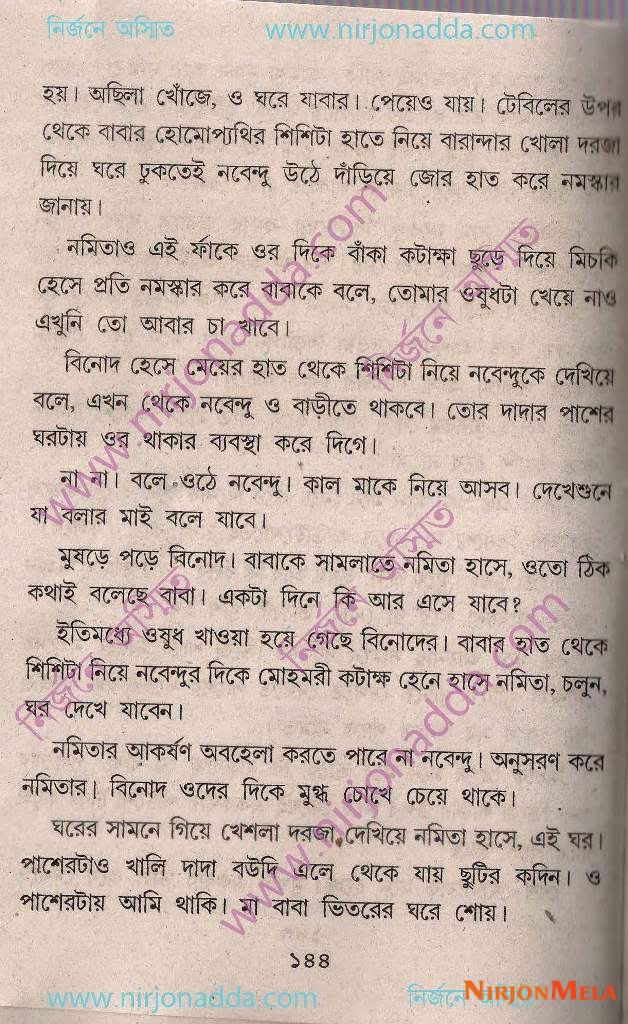 নির্জনে অস্মিত www.nirjonadda.com
হয়। অছিলা খোঁজে, ও ঘরে যাবার। পেয়েও যায়। টেবিলের উপর
থেকে বাবার হোমোপ্যথির শিশিটা হাতে নিয়ে বারান্দার খোলা দরজা
দিয়ে ঘরে ঢুকতেই নবেন্দু উঠে দাঁড়িয়ে জোর হাত করে নমস্কার
জানায়।
নমিতাও এই ফাঁকে ওর দিকে বাঁকা কটাক্ষা ছুড়ে দিয়ে মিচকি
হেসে প্রতি নমস্কার করে বাবাকে বলে, তোমার ওষুধটা খেয়ে নাও
এখুনি তো আবার চা খাবে।
বিনোদ হেসে মেয়ের হাত থেকে শিশিটা নিয়ে নবেন্দুকে দেখিয়ে
বলে, এখন থেকে নবেন্দু ও বাড়ীতে থাকবে। তোর দাদার পাশের
ঘরটায় ওর থাকার ব্যবস্থা করে দিগে।
না না। বলে ওঠে নবেন্দু। কাল মাকে নিয়ে আসব। দেখেশুনে
যা বলার মাই বলে যাবে।
মুষড়ে পড়ে বিনোদ। বাবাকে সামলাতে নমিতা হাসে, ওতো ঠিক
কথাই বলেছে বাবা। একটা দিনে কি আর এসে যাবে?
ইতিমধ্যে ওষুধ খাওয়া হয়ে গেছে বিনোদের। বাবার হাত থেকে
শিশিটা নিয়ে নবেন্দুর দিকে মোহমরী কটাক্ষ হেনে হাসে নমিতা, চলুন,
ঘর দেখে যাবেন।
নমিতার আকর্ষণ অবহেলা করতে পারে না নবেন্দু। অনুসরণ করে
নমিতার। বিনোদ ওদের দিকে মুগ্ধ চোখে চেয়ে থাকে।
ঘরের সামনে গিয়ে দরজা দেখিয়ে নমিতা হাসে, এই ঘর।
পাশেরটাও খালি দাদা বউদি এলে থেকে যায় ছুটির কদিন। ও
পাশেরটায় আমি থাকি। মা বাবা ভিতরের ঘরে শোয়।
১৪৪
www.nirjonadda.com নির্জনে
NIRJONMELA
www.nirjonadda.com
নির্জনে অস্মিত
www.nirjonadda.com
নির্জনে অস্মিত
নির্জনে অস্মিত